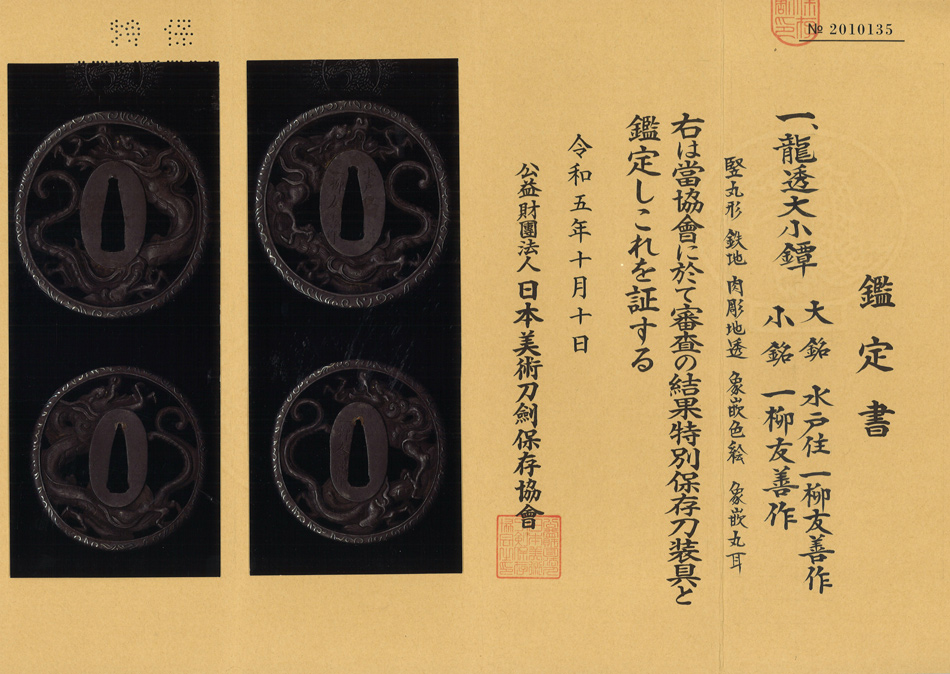 № 2010135
鑑定書
一、龍透大小鐔
大銘 水戸住一柳友善作
小銘 一柳友善作
竪丸形 鉄地 肉彫地透 象嵌色絵 象嵌丸耳
右は當協會に於て審査の結果特別保存刀装具と
鑑定しこれを証する
令和五年十月十日
公益財團法人 日本美術刀劍保存協會